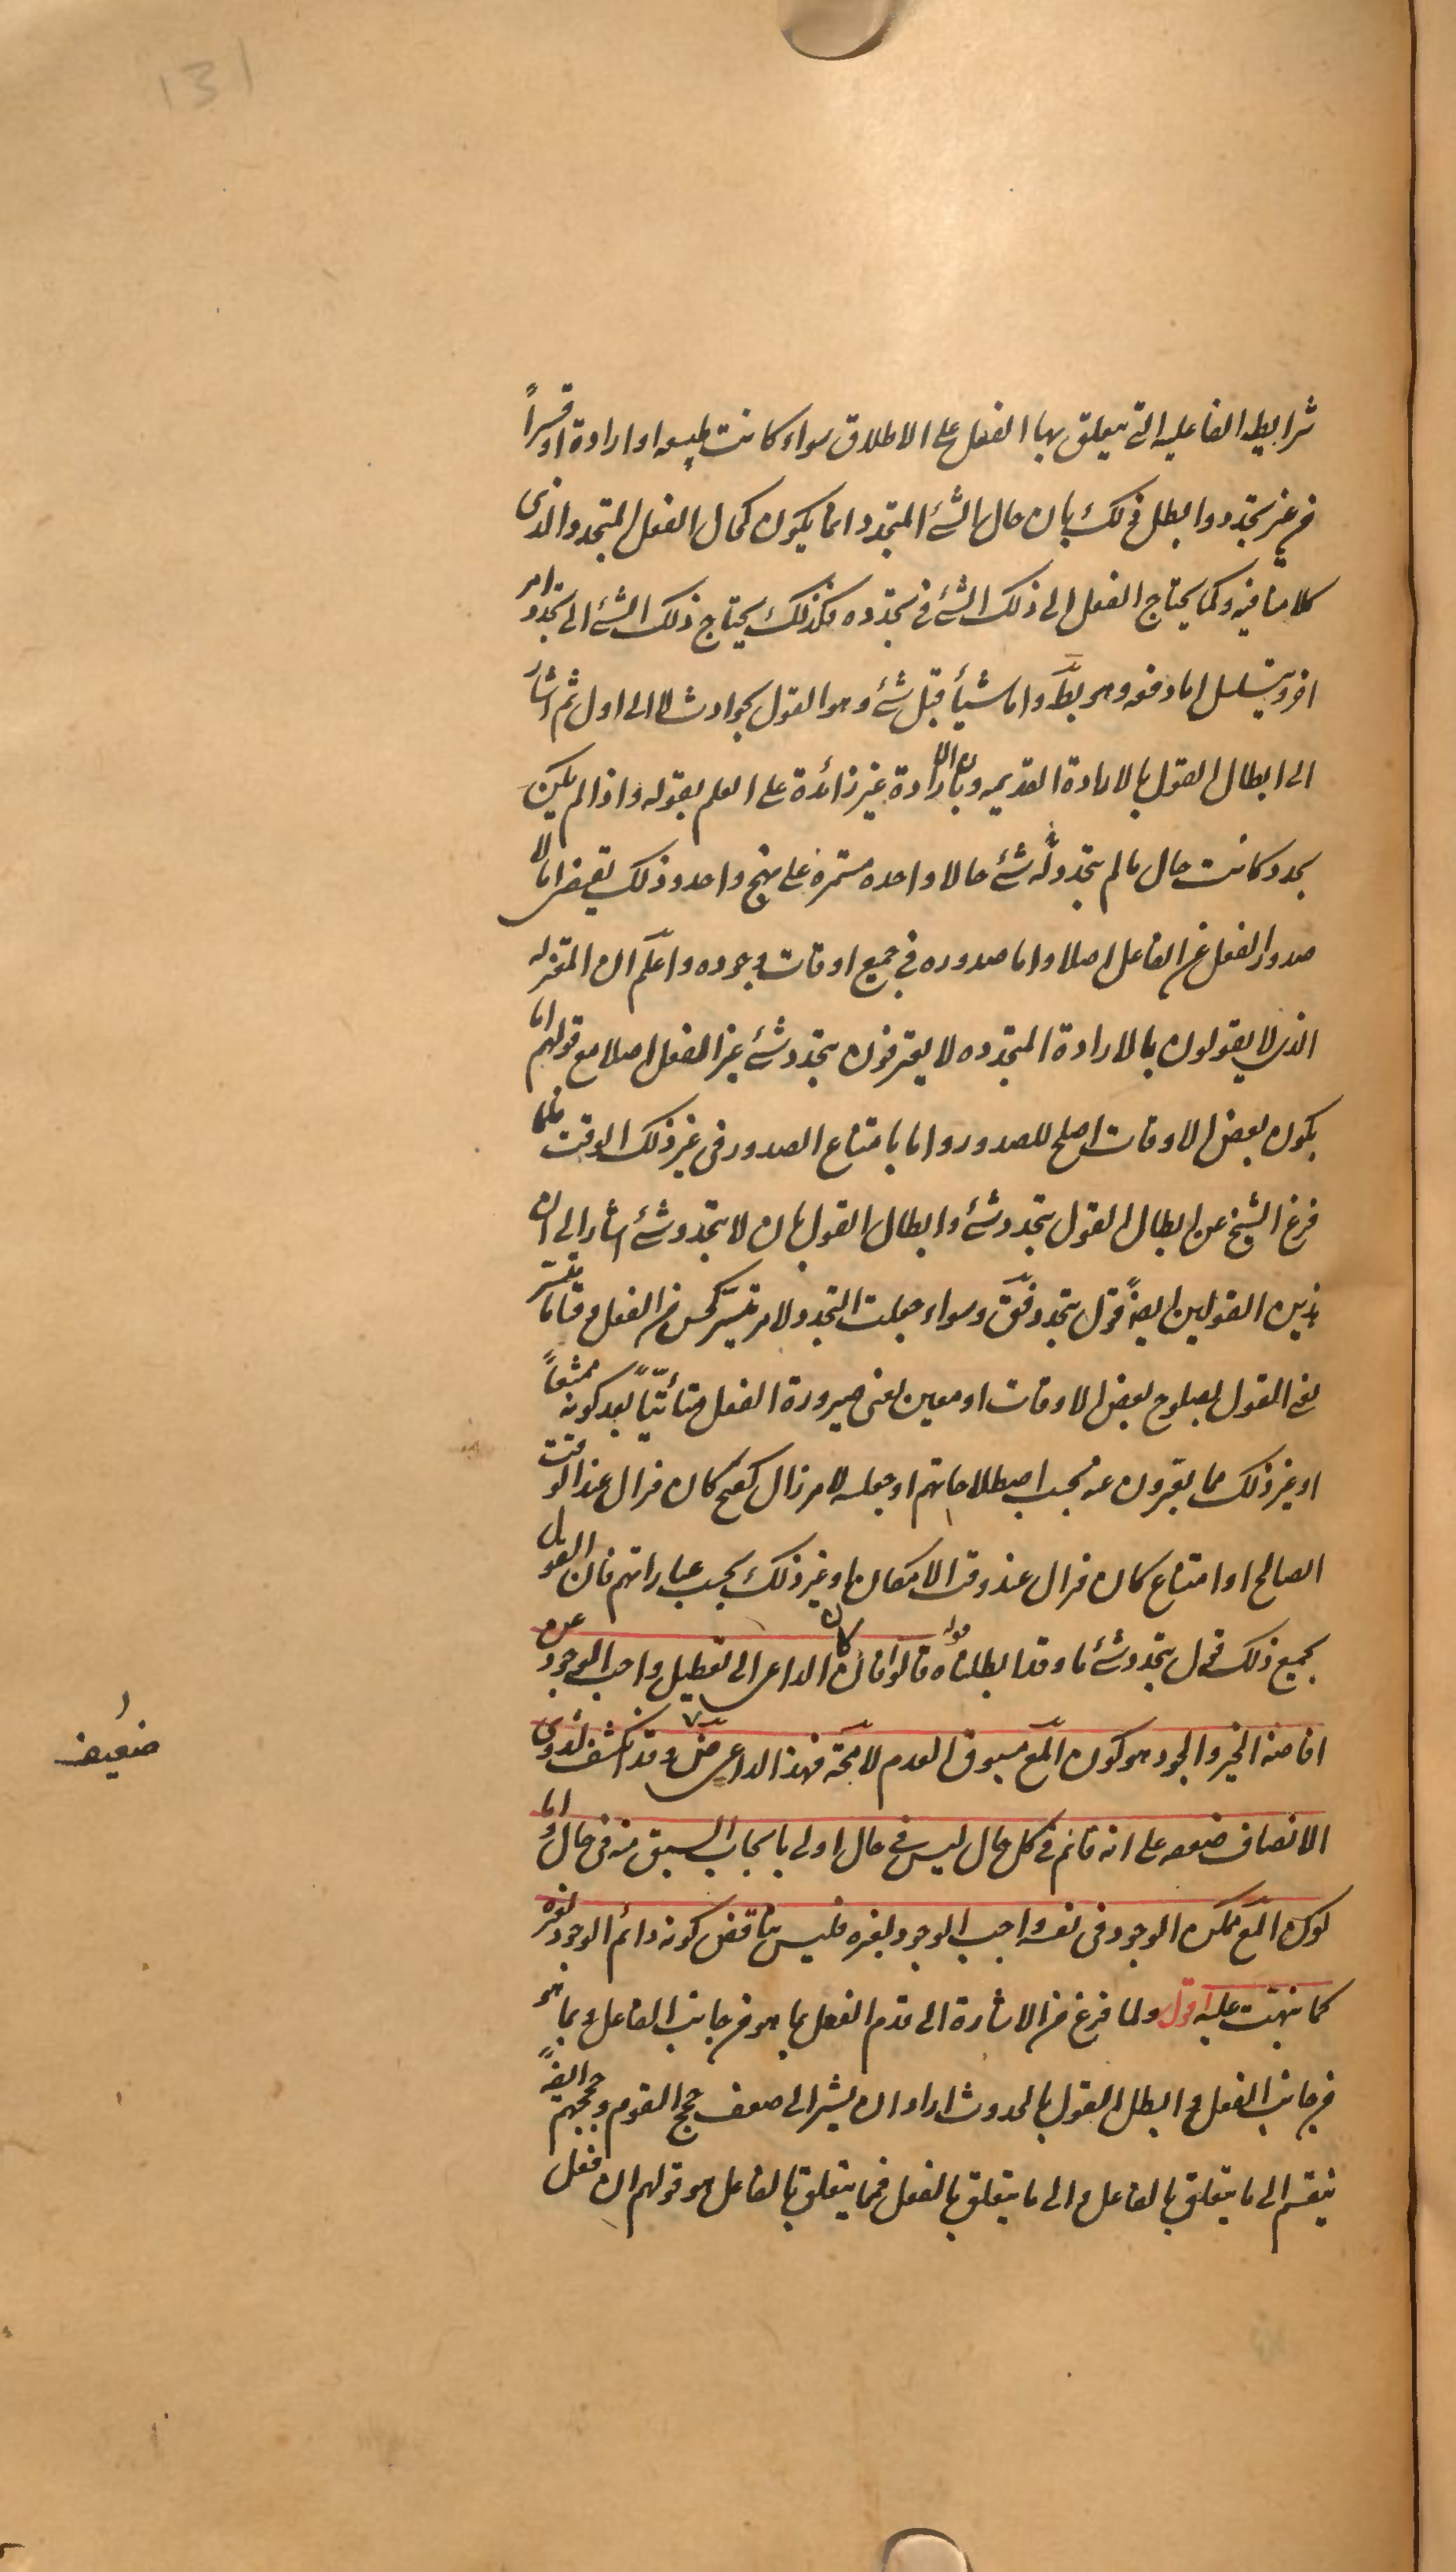 131
شرايطه الفاعليه التي يتعلق بها الفعل على الاطلاق سواء كانت طبيعه او ارادة او قسراً
من غير تجدد وابطل ذلك بان حال الشئ المتجدد انما يكون كحال الفعل المتجدد الذى
كلامنا فيه وكما يحتاج الفعل الى ذلك الشئ فى تجدده فكذلك يحتاج ذلك الشئ الى تجدد امر
اخر ويتسلسل اما دفعه وهو بط واما شيأ قبل شئ وهو القول بحوادث لا الى اول ثم اشار
الى ابطال القول بالارادة القديمه وبان الارادة غير زائدة على العلم بقوله واذا لم يكن
تجدد وكانت حال ما لم يتجدد له شئ حالا واحده مستمره على نهج واحد وذلك يقتضى اما لا
صدور الفعل عن الفاعل اصلا واما صدوره في جميع اوقات وجوده واعلم ان المعتزله
الذين لا يقولون بالارادة المتجدده لا يعترفون بتجدد شئ غير الفعل اصلا مع قولهم اما
بكون بعض الاوقات اصلح للصدور واما بامتناع الصدور فى غير ذلك الوقت فلما
فرغ الشيخ عن ابطال القول بتجدد شئ وابطال القول بان لا يتجدد شئ اشار الى ان
هذين القولين ايضً قول بتجدد فق وسواء جعلت التجدد لامر تيسر كحسن من الفعل وقتاما تيسر
يعنى القول بصلوح بعض الاوقات او معين يعنى صيرورة الفعل متأتّياً بعد كونه ممتنعاً
او غير ذلك مما يعبرون عنه بحسب اصطلاحاتهم او جعلته لامر زال كقبح كان فزال عند الوقت
الصالح او امتناع كان فزال عند وقت الامكان او غير ذلك بحسب عباراتهم فان القول
بجميع ذلك قول بتجدد شئ ما وقد ابطلناه قوله قالوا فان كان الداعى الى تعطيل واجب الوجود عن
افاضه الخير والجود هو كون المع مسبوق العدم لا محة فهذا الداعى ض وقد انكشف لذوى
الانصاف ضعفه على انه قائم في كل حال ليس في حال اولى بايجاب السبق منه فى حال واما
كون المع ممكن الوجود فى نفسه واجب الوجود لغيره فليس يناقض كونه دائم الوجود لغيره
كما نبهت عليه اقول ولما فرغ من الاشارة الى قدم الفعل بما هو من جانب الفاعل وبما هو
من جانب الفعل وابطل القول بالحدوث اراد ان يشير الى ضعف حجج القوم وحججهم ايضً
ينقسم الى ما يتعلق بالفاعل والى ما يتعلق بالفعل فما يتعلق بالفاعل هو قولهم ان فعل
ضعيف